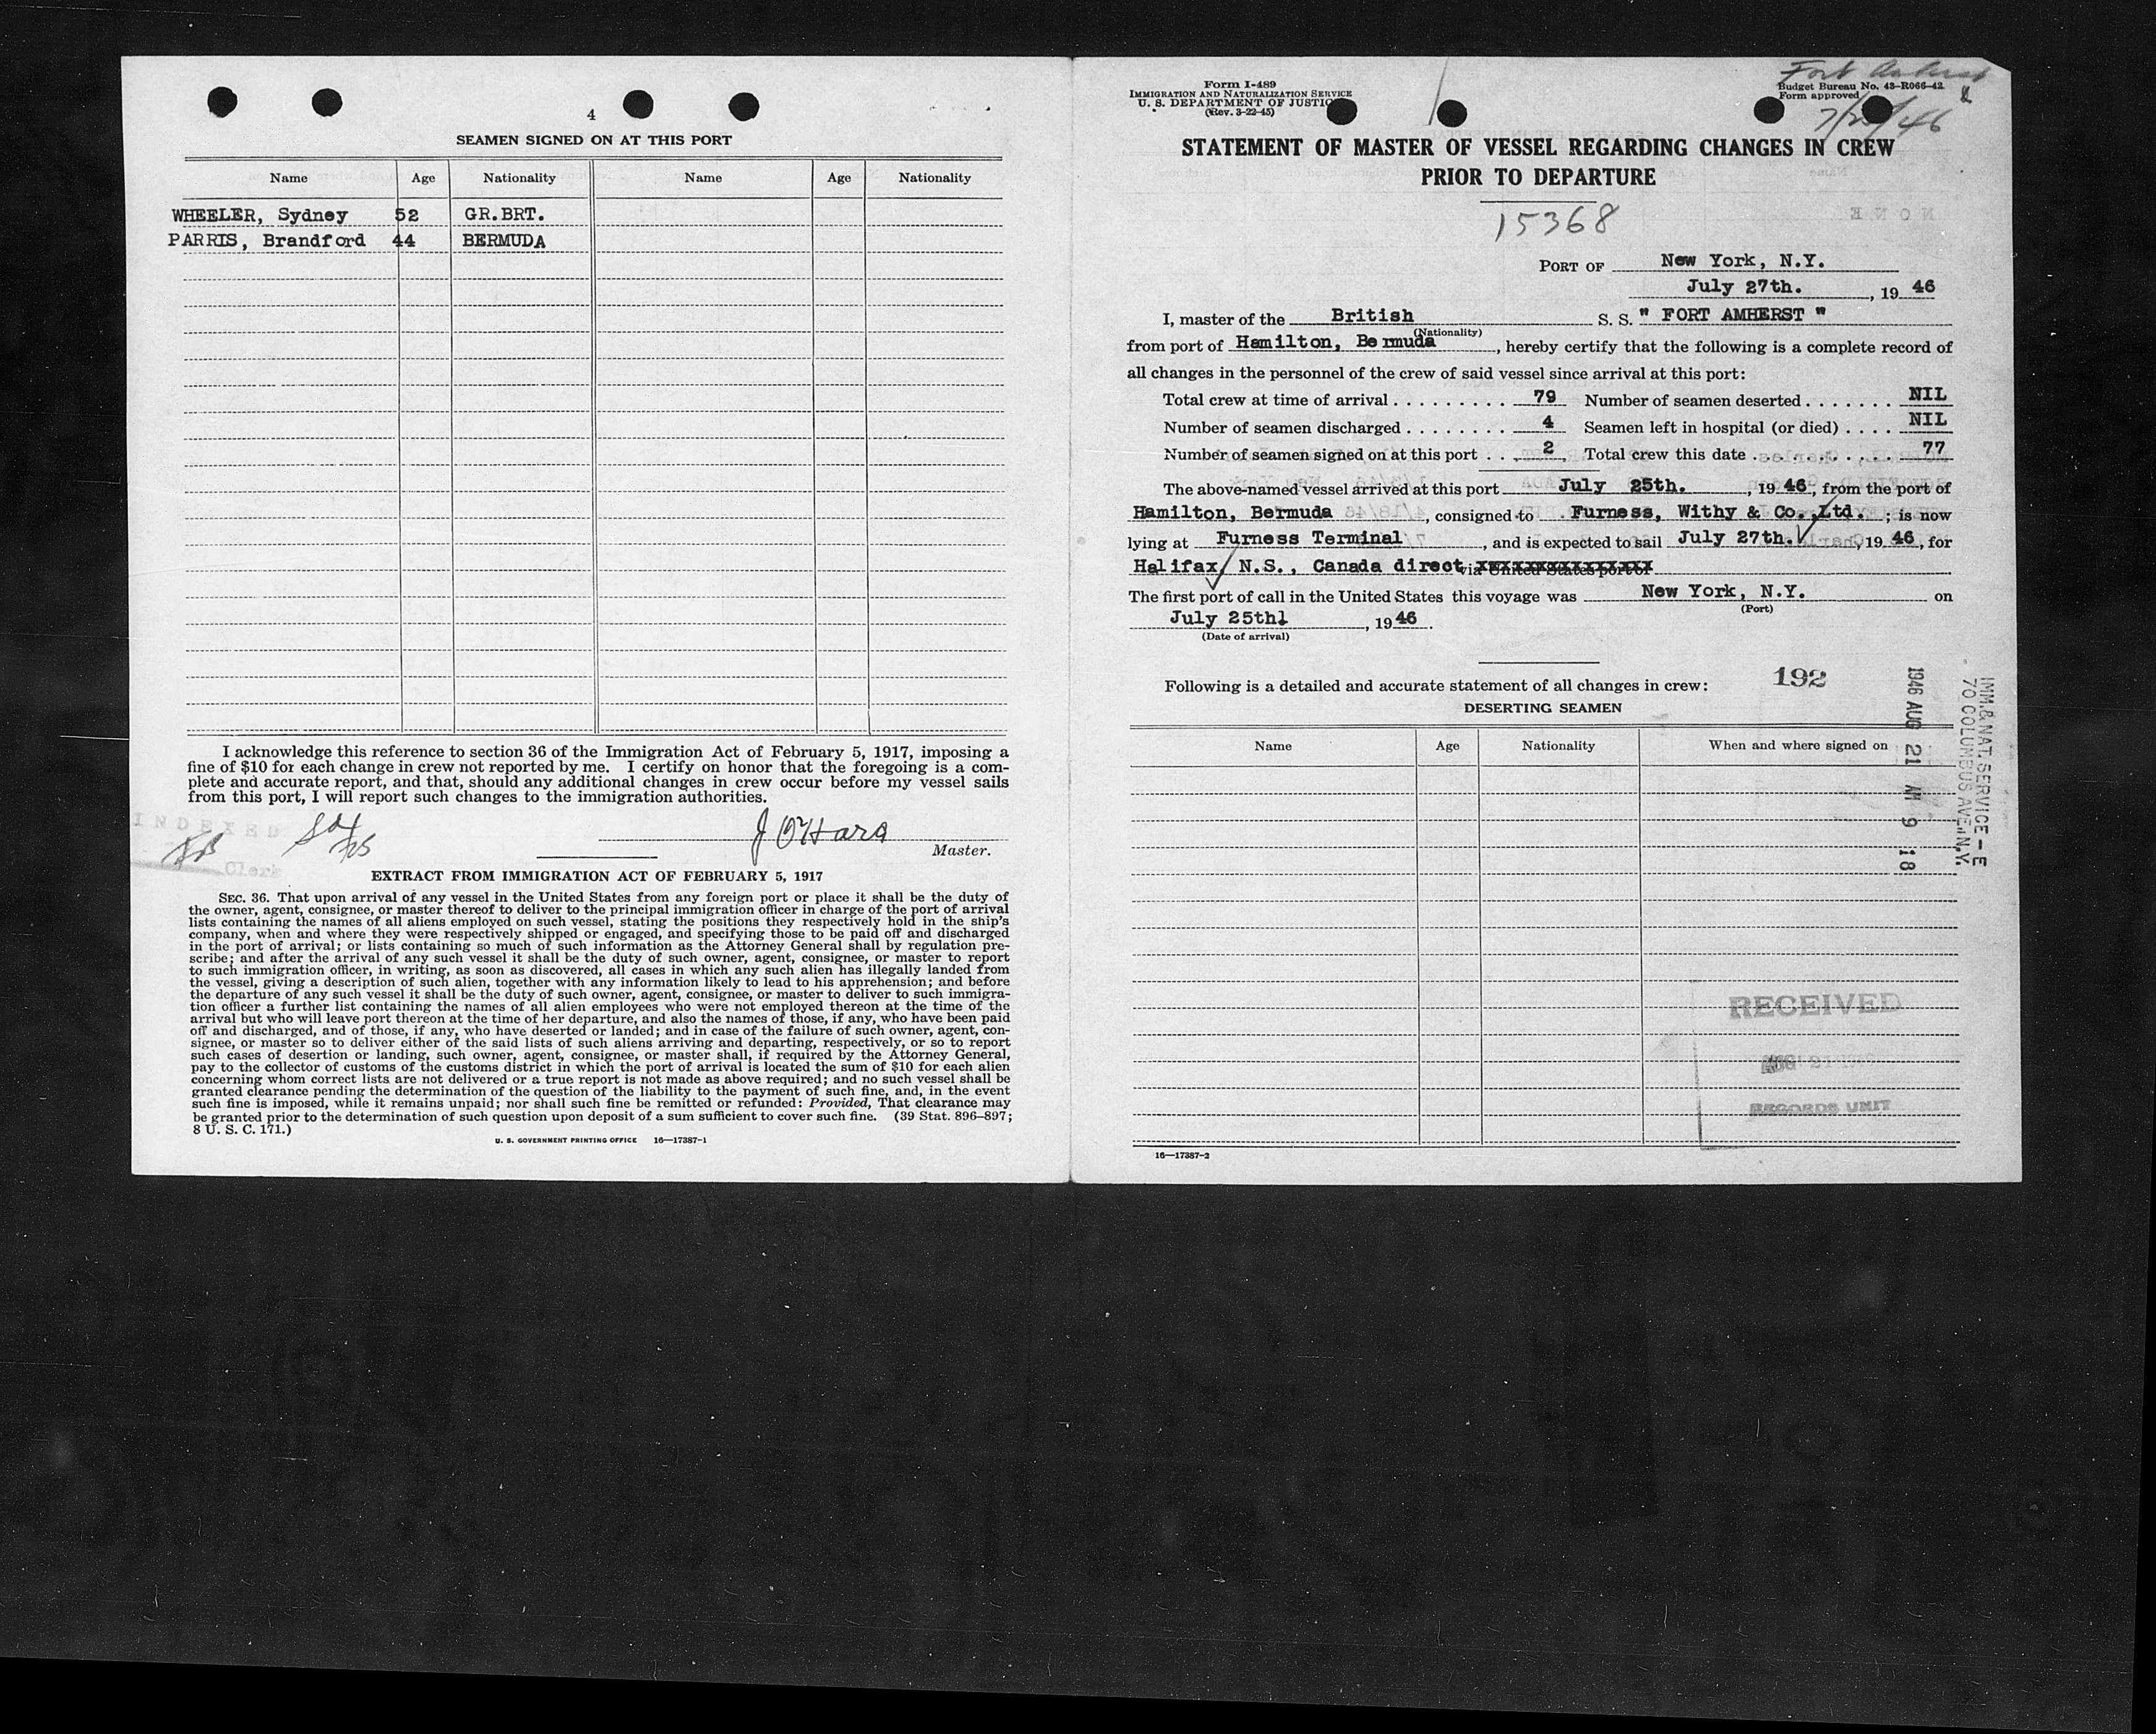 4
SEAMEN SIGNED ON AT THIS PORT
Name Age Nationality Name Age Nationality
WHEELER, Sydney 52 GR.BRT.
PARRIS, Brandford 44 BERMUDA
I acknowledge this reference to section 36 of the Immigration Act of February 5, 1917, imposing a
fine of $10 for each change in crew not reported by me. I certify on honor that the foregoing is a com-
plete and accurate report, and that, should any additional changes in crew occur before my vessel sails
from this port, I will report such changes to the immigration authorities.
INDEXED
J O'Hara
Master.
Clerk
EXTRACT FROM IMMIGRATION ACT OF FEBRUARY 5, 1917
SEC. 36. That upon arrival of any vessel in the United States from any foreign port or place it shall be the duty of
the owner, agent, consignee, or master thereof to deliver to the principal immigration officer in charge of the port of arrival
lists containing the names of all aliens employed on such vessel, stating the positions they respectively hold in the ship's
company, when and where they were respectively shipped or engaged, and specifying those to be paid off and discharged
in the port of arrival; or lists containing so much of such information as the Attorney General shall by regulation pre-
scribe; and after the arrival of any such vessel it shall be the duty of such owner, agent, consignee, or master to report
to such immigration officer, in writing, as soon as discovered, all cases in which any such alien has illegally landed from
the vessel, giving a description of such alien, together with any information likely to lead to his apprehension; and before
the departure of any such vessel it shall be the duty of such owner, agent, consignee, or master to deliver to such immigra-
tion officer a further list containing the names of all alien employees who were not employed thereon at the time of the
arrival but who will leave port thereon at the time of her departure, and also the names of those, if any, who have been paid
off and discharged, and of those, if any, who have deserted or landed; and in case of the failure of such owner, agent, con-
signee, or master so to deliver either of the said lists of such aliens arriving and departing, respectively, or so to report
such cases of desertion or landing, such owner, agent, consignee, or master shall, if required by the Attorney General,
pay to the collector of customs of the customs district in which the port of arrival is located the sum of $10 for each alien
concerning whom correct lists are not delivered or a true report is not made as above required; and no such vessel shall be
granted clearance pending the determination of the question of the liability to the payment of such fine, and, in the event
such fine is imposed, while it remains unpaid; nor shall such fine be remitted or refunded: Provided, That clearance may
be granted prior to the determination of such question upon deposit of a sum sufficient to cover such fine. (39 Stat. 896–897;
8 U. S. C. 171.)
U. S. GOVERNMENT PRINTING OFFICE 16—17387-1
Form I-489
IMMIGRATION AND NATURALIZATION SERVICE
U. S. DEPARTMENT OF JUSTICE
(Rev. 3-22-45)
Fort Amherst
Budget Bureau No. 43-R066-42
Form approved
7/25/46
STATEMENT OF MASTER OF VESSEL REGARDING CHANGES IN CREW
PRIOR TO DEPARTURE
15368
PORT OF New York, N.Y.
July 27th. , 19 46
I, master of the British S. S. " FORT AMHERST "
(Nationality)
from port of Hamilton, Bermuda , hereby certify that the following is a complete record of
all changes in the personnel of the crew of said vessel since arrival at this port:
Total crew at time of arrival . . . . . . . . . 79 Number of seamen deserted . . . . . . . NIL
Number of seamen discharged . . . . . . . . 4 Seamen left in hospital (or died) . . . . NIL
Number of seamen signed on at this port . . . 2 Total crew this date . . . . . . . . . . . 77
The above-named vessel arrived at this port July 25th. , 19 46, from the port of
Hamilton, Bermuda , consigned to Furness, Withy & Co., Ltd. ; is now
lying at Furness Terminal , and is expected to sail July 27th. , 19 46, for
Halifax, N.S., Canada direct via United States port of
The first port of call in the United States this voyage was New York, N.Y. on
(Port)
July 25th , 19 46 .
(Date of arrival)
192
Following is a detailed and accurate statement of all changes in crew:
DESERTING SEAMEN
Name Age Nationality When and where signed on
1946 AUG 21 AM 9 18
IMM. & NAT. SERVICE – E
70 COLUMBUS AVE., N.Y.
RECEIVED
AUG 21 1946
RECORDS UNIT
16—17387-2